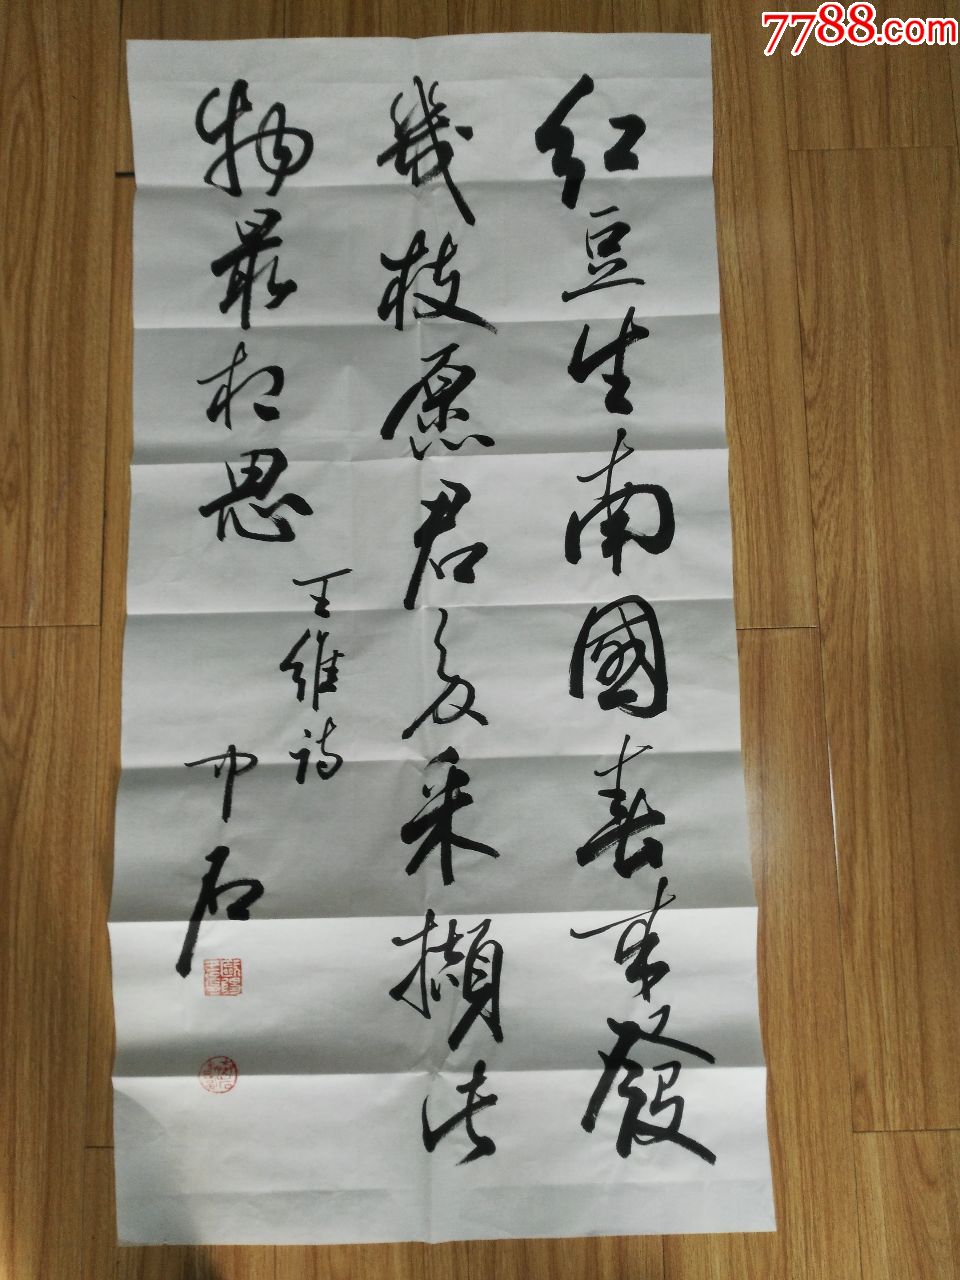 红豆生南國春来發
幾枝愿君多采擷此
物最相思
王维诗
中石
7788.com